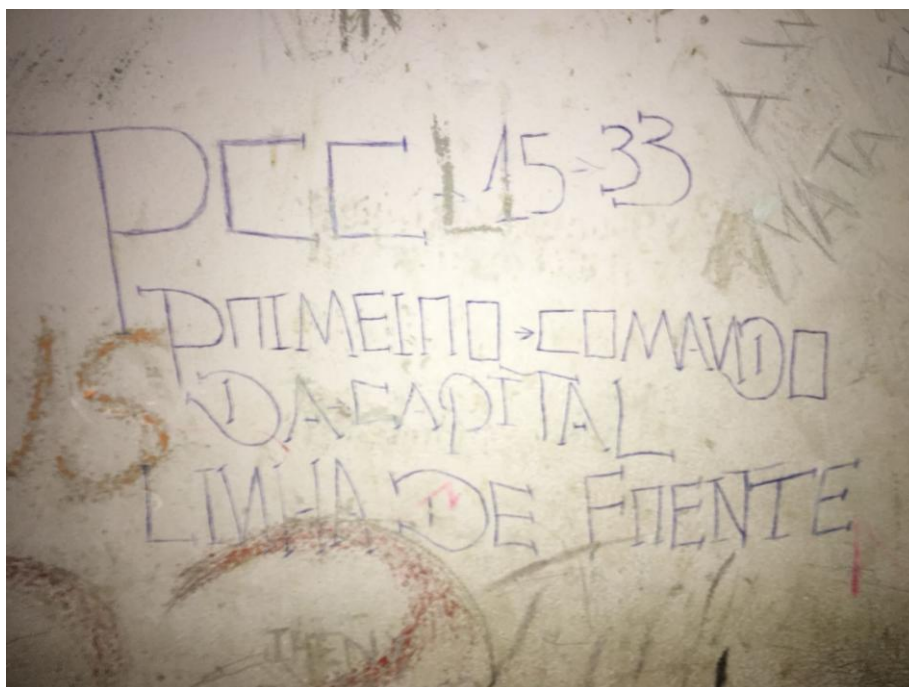 PCC 15-33
PRIMEIRO-COMANDO
DA-CAPITAL
LINHA DE FRENTE
MATA